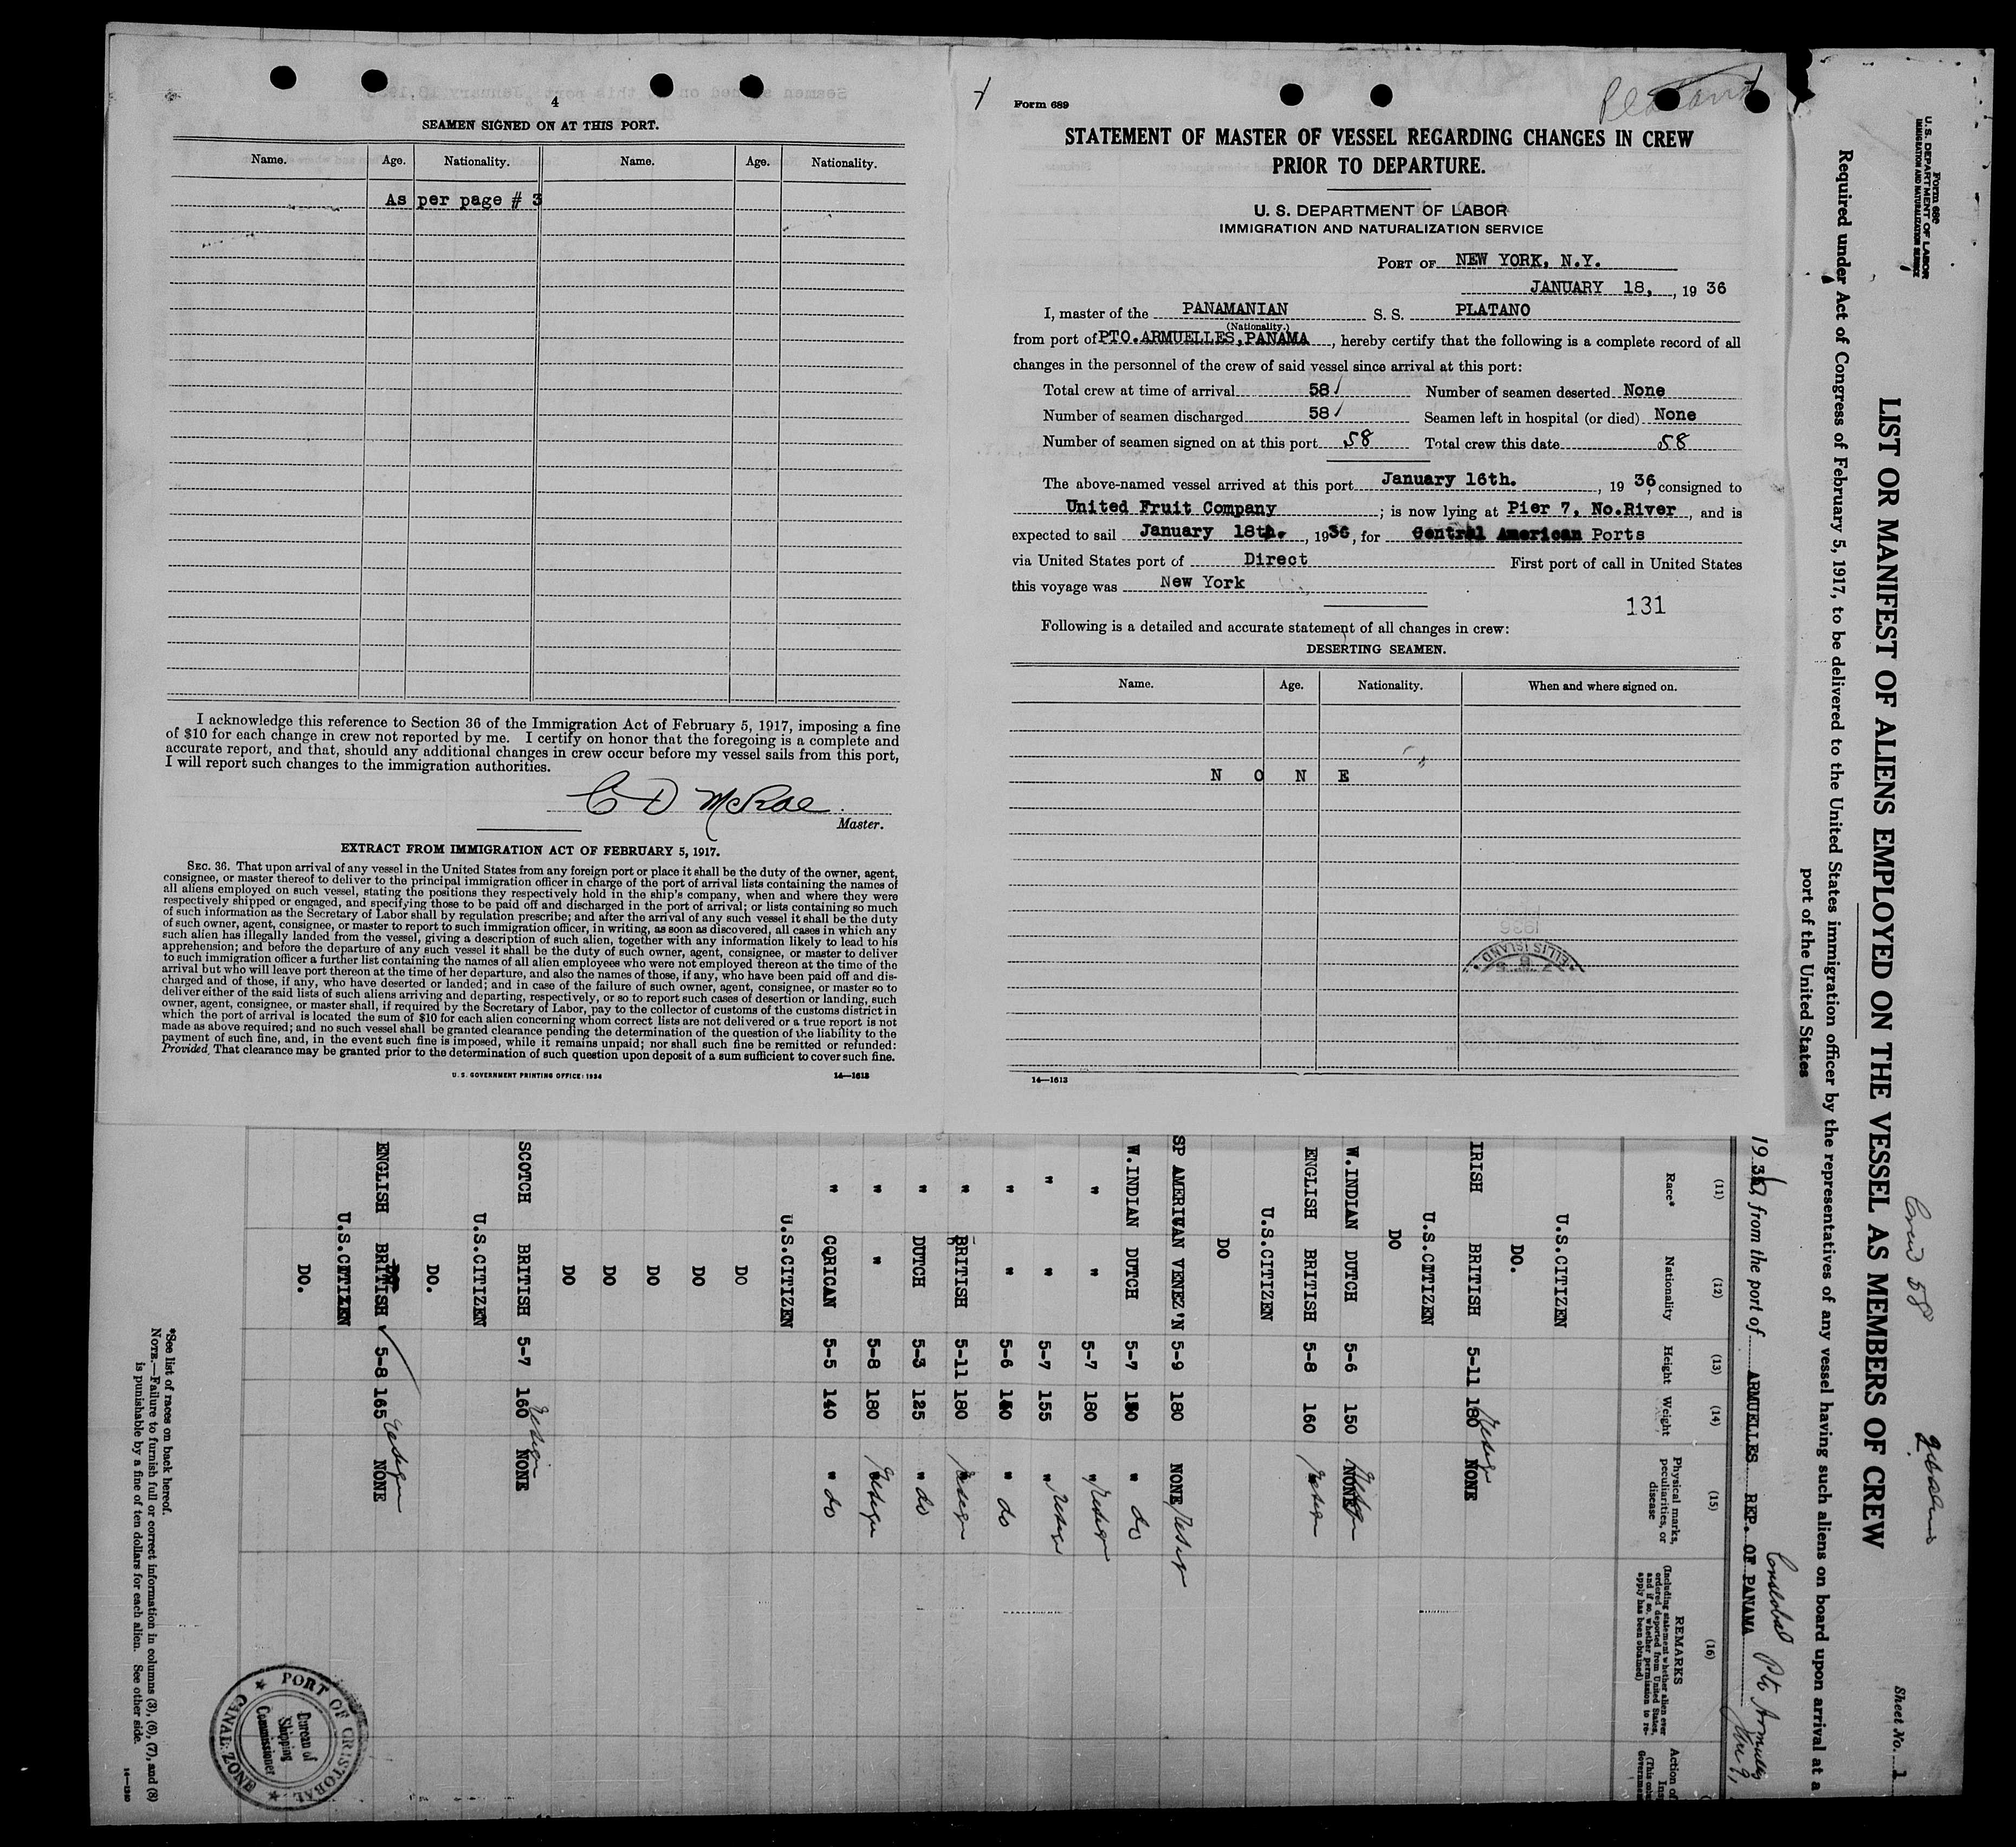 4
SEAMEN SIGNED ON AT THIS PORT.
Name. Age. Nationality. Name. Age. Nationality.
As per page # 3
I acknowledge this reference to Section 36 of the Immigration Act of February 5, 1917, imposing a fine
of $10 for each change in crew not reported by me. I certify on honor that the foregoing is a complete and
accurate report, and that, should any additional changes in crew occur before my vessel sails from this port,
I will report such changes to the immigration authorities.
C D McRae
Master.
EXTRACT FROM IMMIGRATION ACT OF FEBRUARY 5, 1917.
SEC. 36. That upon arrival of any vessel in the United States from any foreign port or place it shall be the duty of the owner, agent,
consignee, or master thereof to deliver to the principal immigration officer in charge of the port of arrival lists containing the names of
all aliens employed on such vessel, stating the positions they respectively hold in the ship's company, when and where they were
respectively shipped or engaged, and specifying those to be paid off and discharged in the port of arrival; or lists containing so much
of such information as the Secretary of Labor shall by regulation prescribe; and after the arrival of any such vessel it shall be the duty
of such owner, agent, consignee, or master to report to such immigration officer, in writing, as soon as discovered, all cases in which any
such alien has illegally landed from the vessel, giving a description of such alien, together with any information likely to lead to his
apprehension; and before the departure of any such vessel it shall be the duty of such owner, agent, consignee, or master to deliver
to such immigration officer a further list containing the names of all alien employees who were not employed thereon at the time of the
arrival but who will leave port thereon at the time of her departure, and also the names of those, if any, who have been paid off and dis-
charged and of those, if any, who have deserted or landed; and in case of the failure of such owner, agent, consignee, or master so to
deliver either of the said lists of such aliens arriving and departing, respectively, or so to report such cases of desertion or landing, such
owner, agent, consignee, or master shall, if required by the Secretary of Labor, pay to the collector of customs of the customs district in
which the port of arrival is located the sum of $10 for each alien concerning whom correct lists are not delivered or a true report is not
made as above required; and no such vessel shall be granted clearance pending the determination of the question of the liability to the
payment of such fine, and, in the event such fine is imposed, while it remains unpaid; nor shall such fine be remitted or refunded:
Provided, That clearance may be granted prior to the determination of such question upon deposit of a sum sufficient to cover such fine.
U. S. GOVERNMENT PRINTING OFFICE: 1934
14—1613
Form 689
STATEMENT OF MASTER OF VESSEL REGARDING CHANGES IN CREW
PRIOR TO DEPARTURE.
U. S. DEPARTMENT OF LABOR
IMMIGRATION AND NATURALIZATION SERVICE
PORT OF NEW YORK, N.Y.
JANUARY 18, , 19 36
I, master of the PANAMANIAN S. S. PLATANO
(Nationality.)
from port of PTO.ARMUELLES,PANAMA, hereby certify that the following is a complete record of all
changes in the personnel of the crew of said vessel since arrival at this port:
Total crew at time of arrival 58 Number of seamen deserted None
Number of seamen discharged 58 Seamen left in hospital (or died) None
Number of seamen signed on at this port 58 Total crew this date 58
The above-named vessel arrived at this port January 16th. , 19 36, consigned to
United Fruit Company ; is now lying at Pier 7, No.River , and is
expected to sail January 18th. , 1936, for Central American Ports
via United States port of Direct First port of call in United States
this voyage was New York
131
Following is a detailed and accurate statement of all changes in crew:
DESERTING SEAMEN.
Name. Age. Nationality. When and where signed on.
N O N E
ELLIS ISLAND
1936
14—1613
Form 680
U. S. DEPARTMENT OF LABOR
IMMIGRATION AND NATURALIZATION SERVICE
Crew 58
Sheet No. 1
LIST OR MANIFEST OF ALIENS EMPLOYED ON THE VESSEL AS MEMBERS OF CREW
Required under Act of Congress of February 5, 1917, to be delivered to the United States immigration officer by the representatives of any vessel having such aliens on board upon arrival at a
port of the United States
Cristobal Pto Armuelles
1936, from the port of ARMUELLES REP. OF PANAMA
(11) (12) (13) (14) (15) (16)
Race* Nationality Height Weight Physical marks, peculiarities, or disease
REMARKS
(Including statement whether alien ever
ordered deported from United States,
and if so, whether permission to re-
apply has been obtained)
U.S.CITIZEN
DO.
IRISH BRITISH 5-11 180 NONE
U.S.CITIZEN
DO
W.INDIAN DUTCH 5-6 150 NONE
ENGLISH BRITISH 5-8 160
U.S.CITIZEN
DO
SP AMERICAN VENEZ'N 5-9 180 NONE
W.INDIAN DUTCH 5-7 130 " do
" " 5-7 180 "
" " 5-7 155 "
" " 5-6 150 " do
" BRITISH 5-11 180 "
" DUTCH 5-3 125 " do
" " 5-8 180 "
" CORICAN 5-5 140 " do
U.S.CITIZEN
DO
DO
DO
DO
DO
SCOTCH BRITISH 5-7 160 NONE
U.S.CITIZEN
DO.
ENGLISH BRITISH 5-8 165 NONE
U.S.CITIZEN
DO.
PORT OF CRISTOBAL
CANAL ZONE
Bureau of
Shipping
Commissioner
*See list of races on back hereof.
NOTE.—Failure to furnish full or correct information in columns (3), (6), (7), and (8)
is punishable by a fine of ten dollars for each alien. See other side.
14—1240